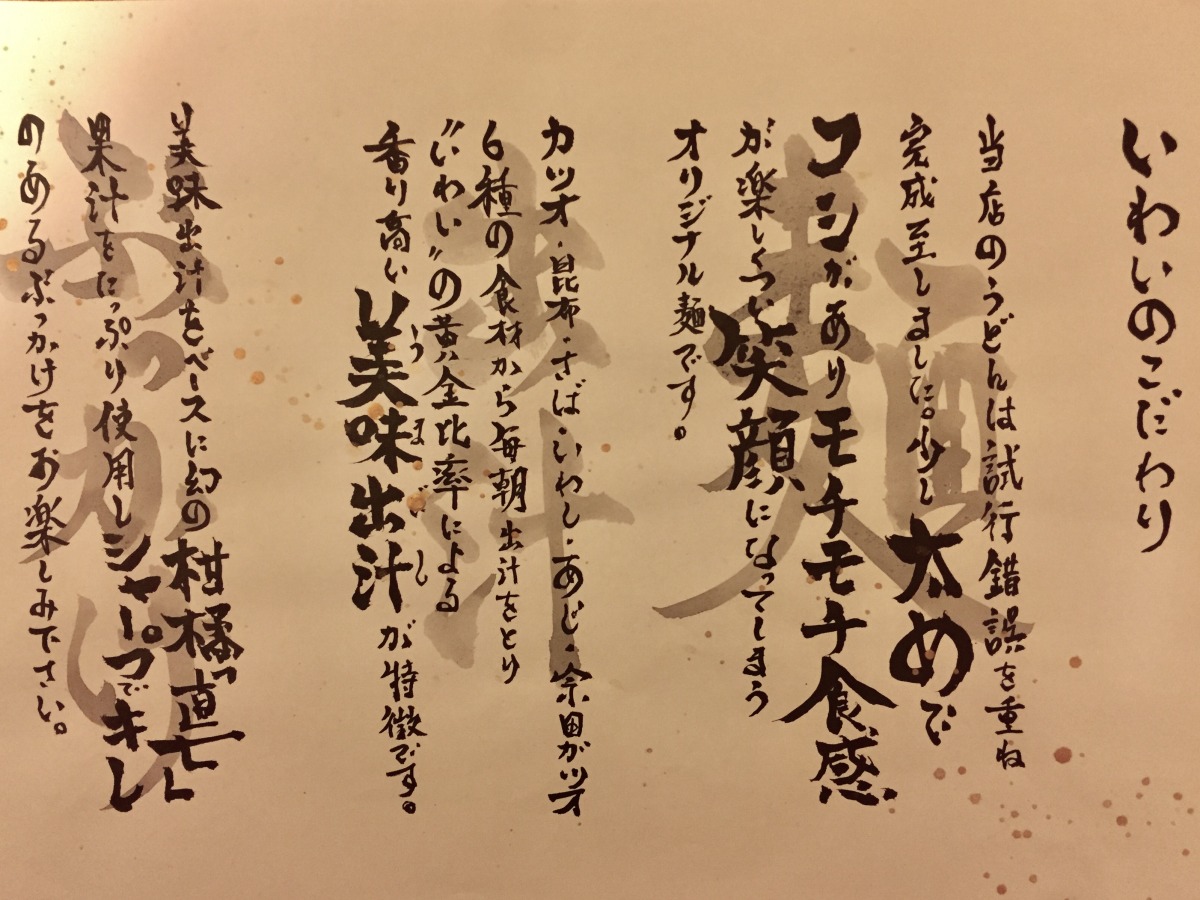 いわいのこだわり
当店のうどんは試行錯誤を重ね
完成至しました。少し太めで
コシがありモチモチ食感
が楽しくつい笑顔になってしまう
オリジナル麺です。
カツオ・昆布・さば・いわし・あじ・宗田ガツオ
6種の食材から毎朝出汁をとり
〝いわい〟の黄金比率による
香り高い美味出汁が特徴です。
うまだし
美味出汁をベースに幻の柑橘「直七」
果汁をたっぷり使用しシャープでキレ
のあるぶっかけをお楽しみ下さい。